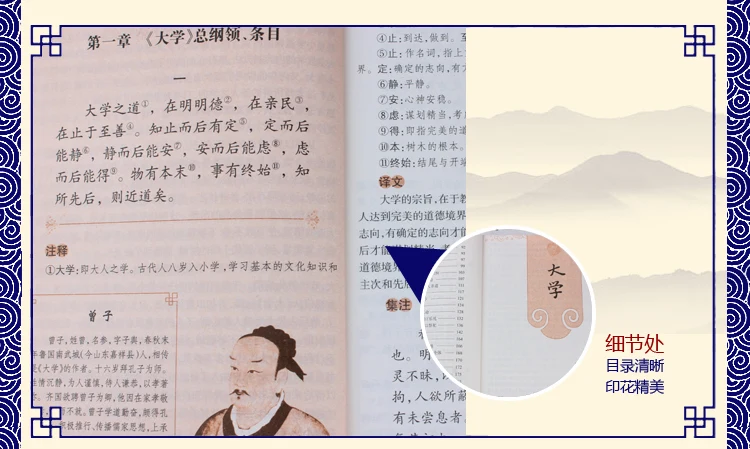 第一章 《大学》总纲领、条目
一
大学之道①,在明明德②,在亲民③,
在止于至善④。知止而后有定⑤,定而后
能静⑥,静而后能安⑦,安而后能虑⑧,虑
而后能得⑨。物有本末⑩,事有终始⑪,知
所先后,则近道矣。
注释
①大学:即大人之学。古代人八岁入小学,学习基本的文化知识和
曾子
曾子,姓曾,名参,字子舆,春秋末
年鲁国南武城(今山东嘉祥县)人,相传
是《大学》的作者。十六岁拜孔子为师。
性情沉静,为人谨慎,待人谦恭,以孝著
齐国欲聘曾子为卿,他因在家孝敬
不就。曾子学道勤奋,颇得孔
积极推行、传播儒家思想,上承
④止:到达,做到。
⑤止:作名词,指上
界。定:确定的志向,有
⑥静:平静。
⑦安:心神安稳。
⑧虑:谋划精当,考
⑨得:即指完美的道
⑩本:树木的根本。
⑪终始:结尾与开
译文
大学的宗旨,在于
人达到完美的道德境界
志向,有确定的志向才能
后才能
道德境界
主次和先
集注
也。明
灵不昧,
拘,人欲所蔽
有未尝息者
大学
细节处
目录清晰
印花精美